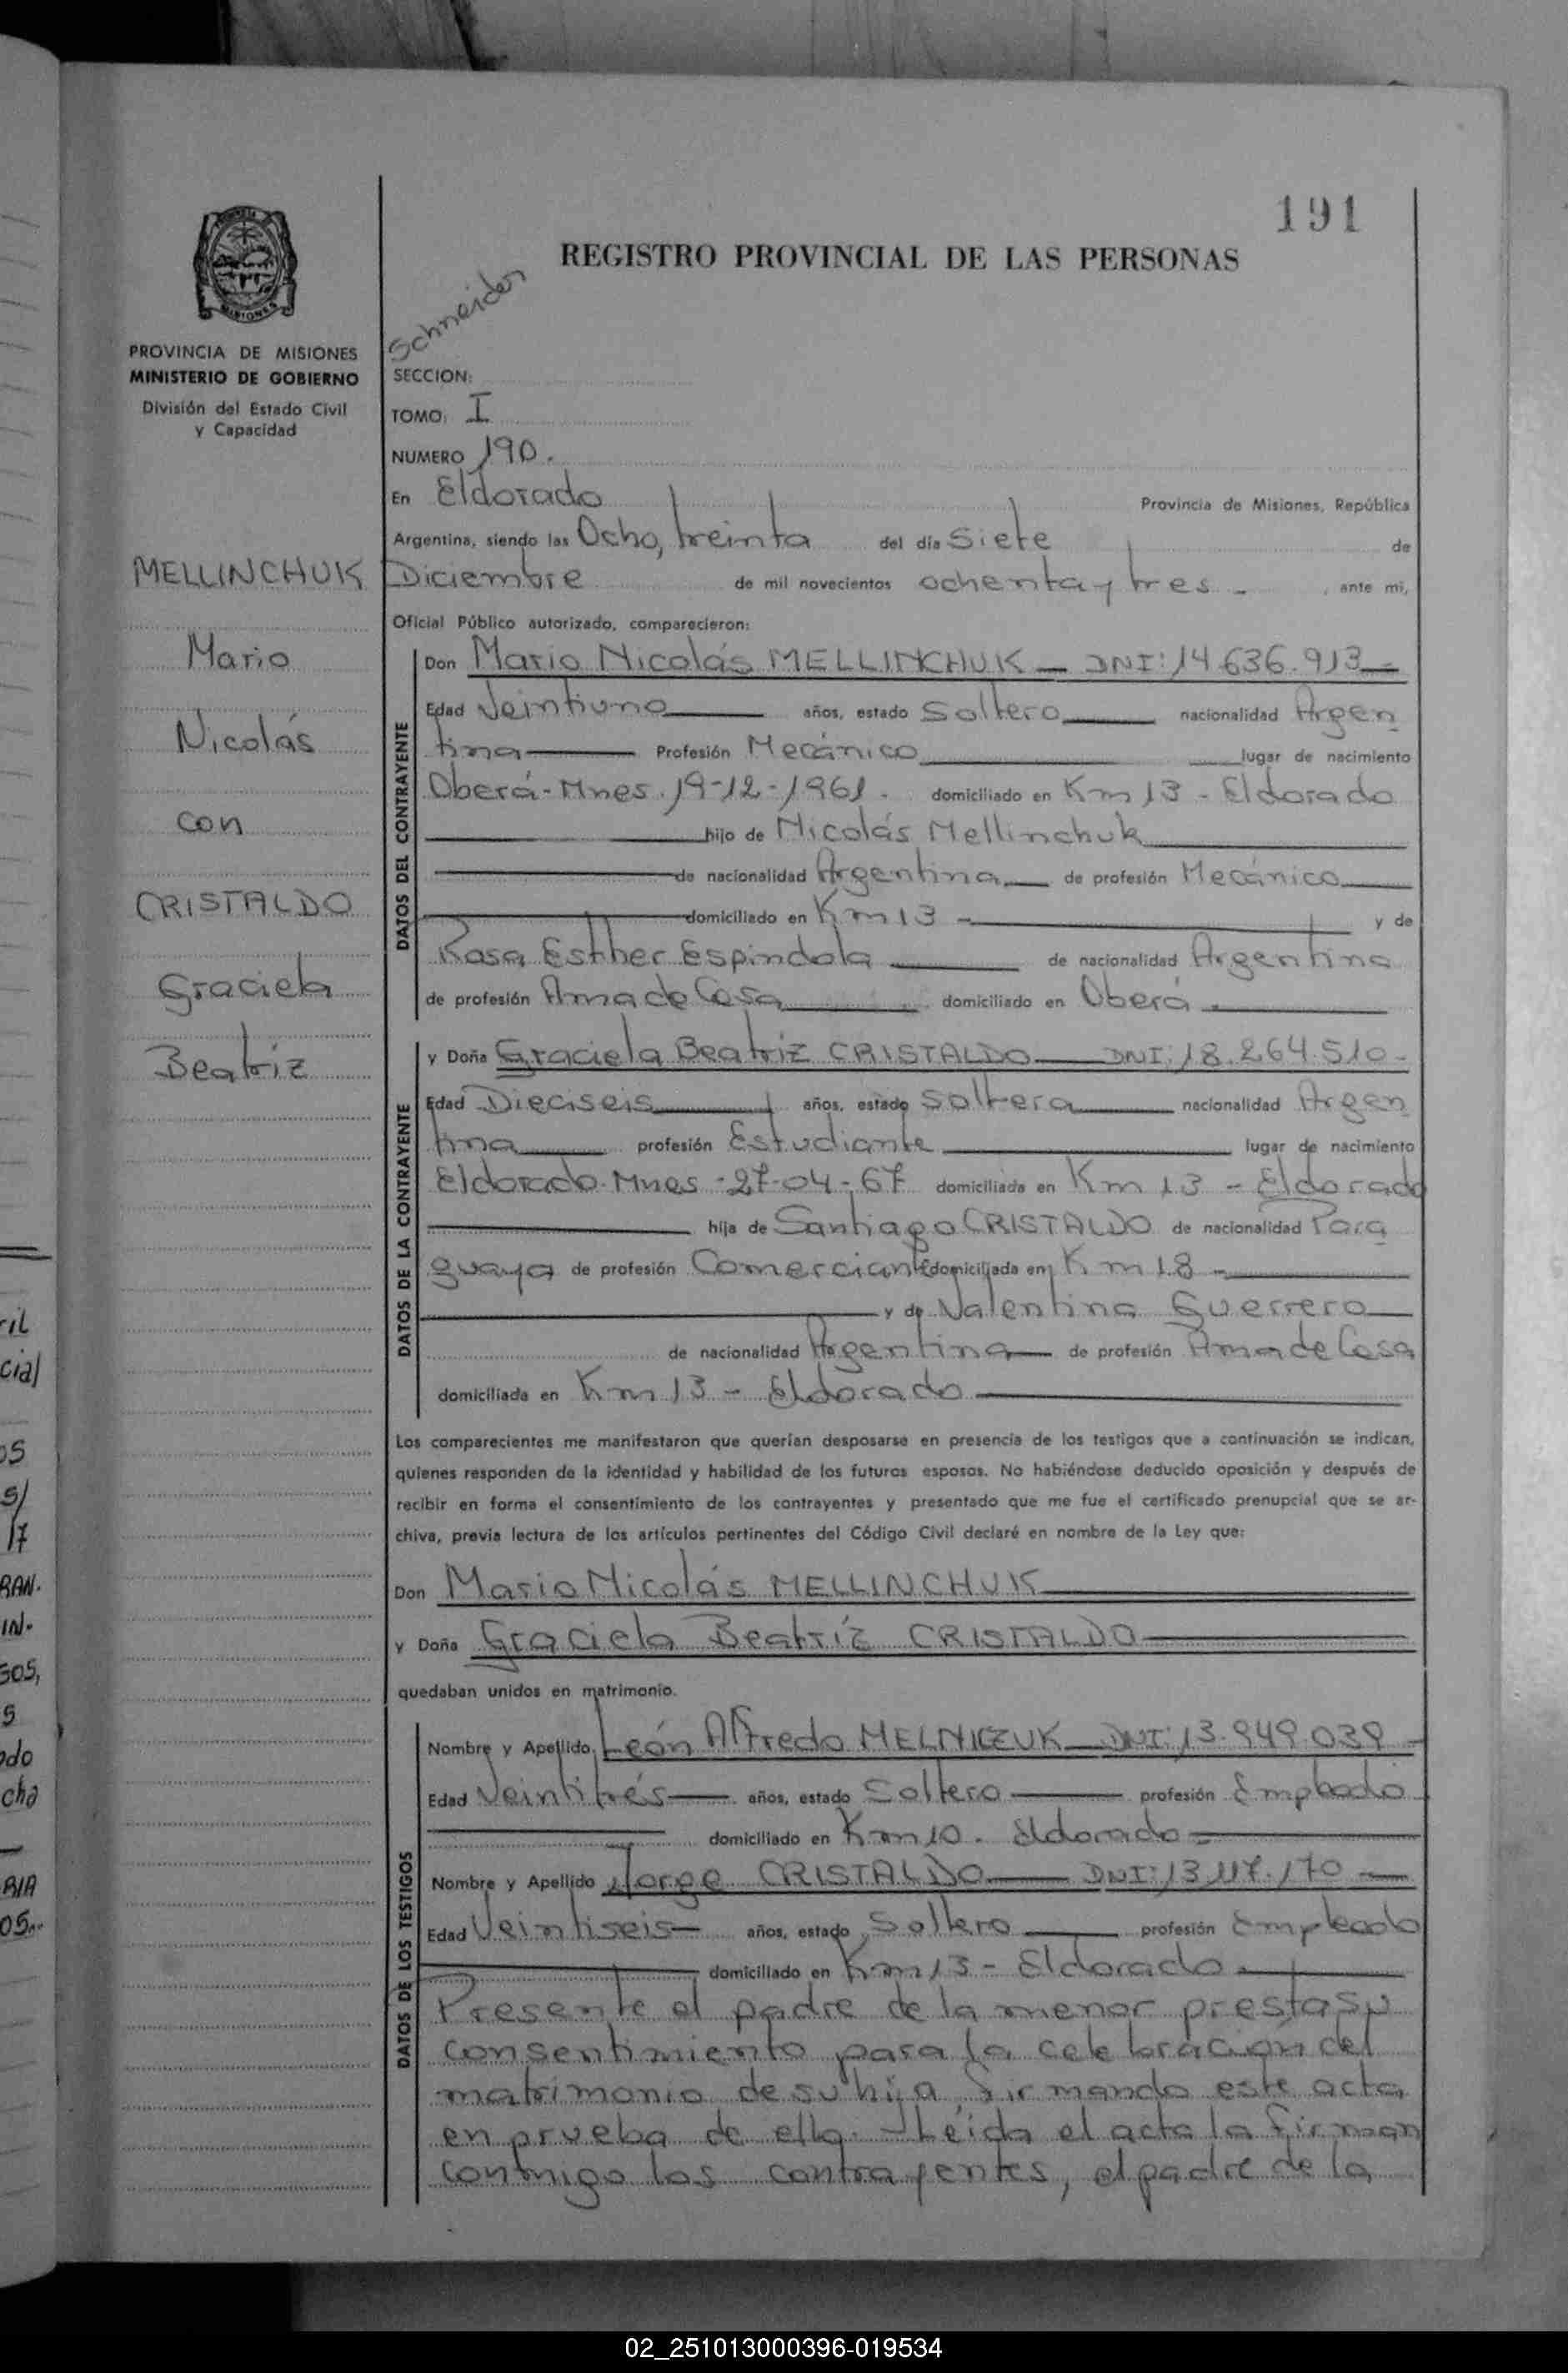 191
REGISTRO PROVINCIAL DE LAS PERSONAS
Schneider
MISIONES
PROVINCIA DE MISIONES
MINISTERIO DE GOBIERNO
División del Estado Civil
y Capacidad
SECCION:
TOMO: I
NUMERO 190.
En Eldorado Provincia de Misiones, República
Argentina, siendo las Ocho, treinta del día Siete de
Diciembre de mil novecientos ochenta y tres - , ante mi,
Oficial Público autorizado, comparecieron:
MELLINCHUK
Mario
Nicolás
con
CRISTALDO
Graciela
Beatriz
DATOS DEL CONTRAYENTE
Don Mario Nicolás MELLINCHUK - DNI: 14.636.913 -
Edad Veintiuno años, estado Soltero nacionalidad Argen
tina Profesión Mecánico lugar de nacimiento
Oberá - Mnes. 19-12-1961. domiciliado en Km 13 - Eldorado
hijo de Nicolás Mellinchuk
de nacionalidad Argentina de profesión Mecánico
domiciliado en Km 13 - y de
Rosa Esther Espindola de nacionalidad Argentina
de profesión Ama de Casa domiciliado en Oberá
DATOS DE LA CONTRAYENTE
y Doña Graciela Beatriz CRISTALDO DNI: 18.264.510 -
Edad Dieciseis años, estado Soltera nacionalidad Argen
tina profesión Estudiante lugar de nacimiento
Eldorado - Mnes - 27-04-67 domiciliada en Km 13 - Eldorado
hija de Santiago CRISTALDO de nacionalidad Para
guaya de profesión Comerciante domiciliada en Km 18 -
y de Valentina Guerrero
de nacionalidad Argentina de profesión Ama de Casa
domiciliada en Km 13 - Eldorado
Los comparecientes me manifestaron que querían desposarse en presencia de los testigos que a continuación se indican,
quienes responden de la identidad y habilidad de los futuros esposos. No habiéndose deducido oposición y después de
recibir en forma el consentimiento de los contrayentes y presentado que me fue el certificado prenupcial que se ar-
chiva, previa lectura de los artículos pertinentes del Código Civil declaré en nombre de la Ley que:
Don Mario Nicolás MELLINCHUK
y Doña Graciela Beatriz CRISTALDO
quedaban unidos en matrimonio.
DATOS DE LOS TESTIGOS
Nombre y Apellido León Alfredo MELNICZUK DNI: 13.949.039 -
Edad Veintitrés años, estado Soltero profesión Empleado
domiciliado en Km 10. Eldorado -
Nombre y Apellido Jorge CRISTALDO DNI: 13.117.170
Edad Veintiseis años, estado Soltero profesión Empleado
domiciliado en Km 13 - Eldorado
Presente el padre de la menor presta su
consentimiento para la celebración del
matrimonio de su hija, firmando este acta
en prueba de ello. - Leída el acta la firman
conmigo los contrayentes, el padre de la
02_251013000396-019534